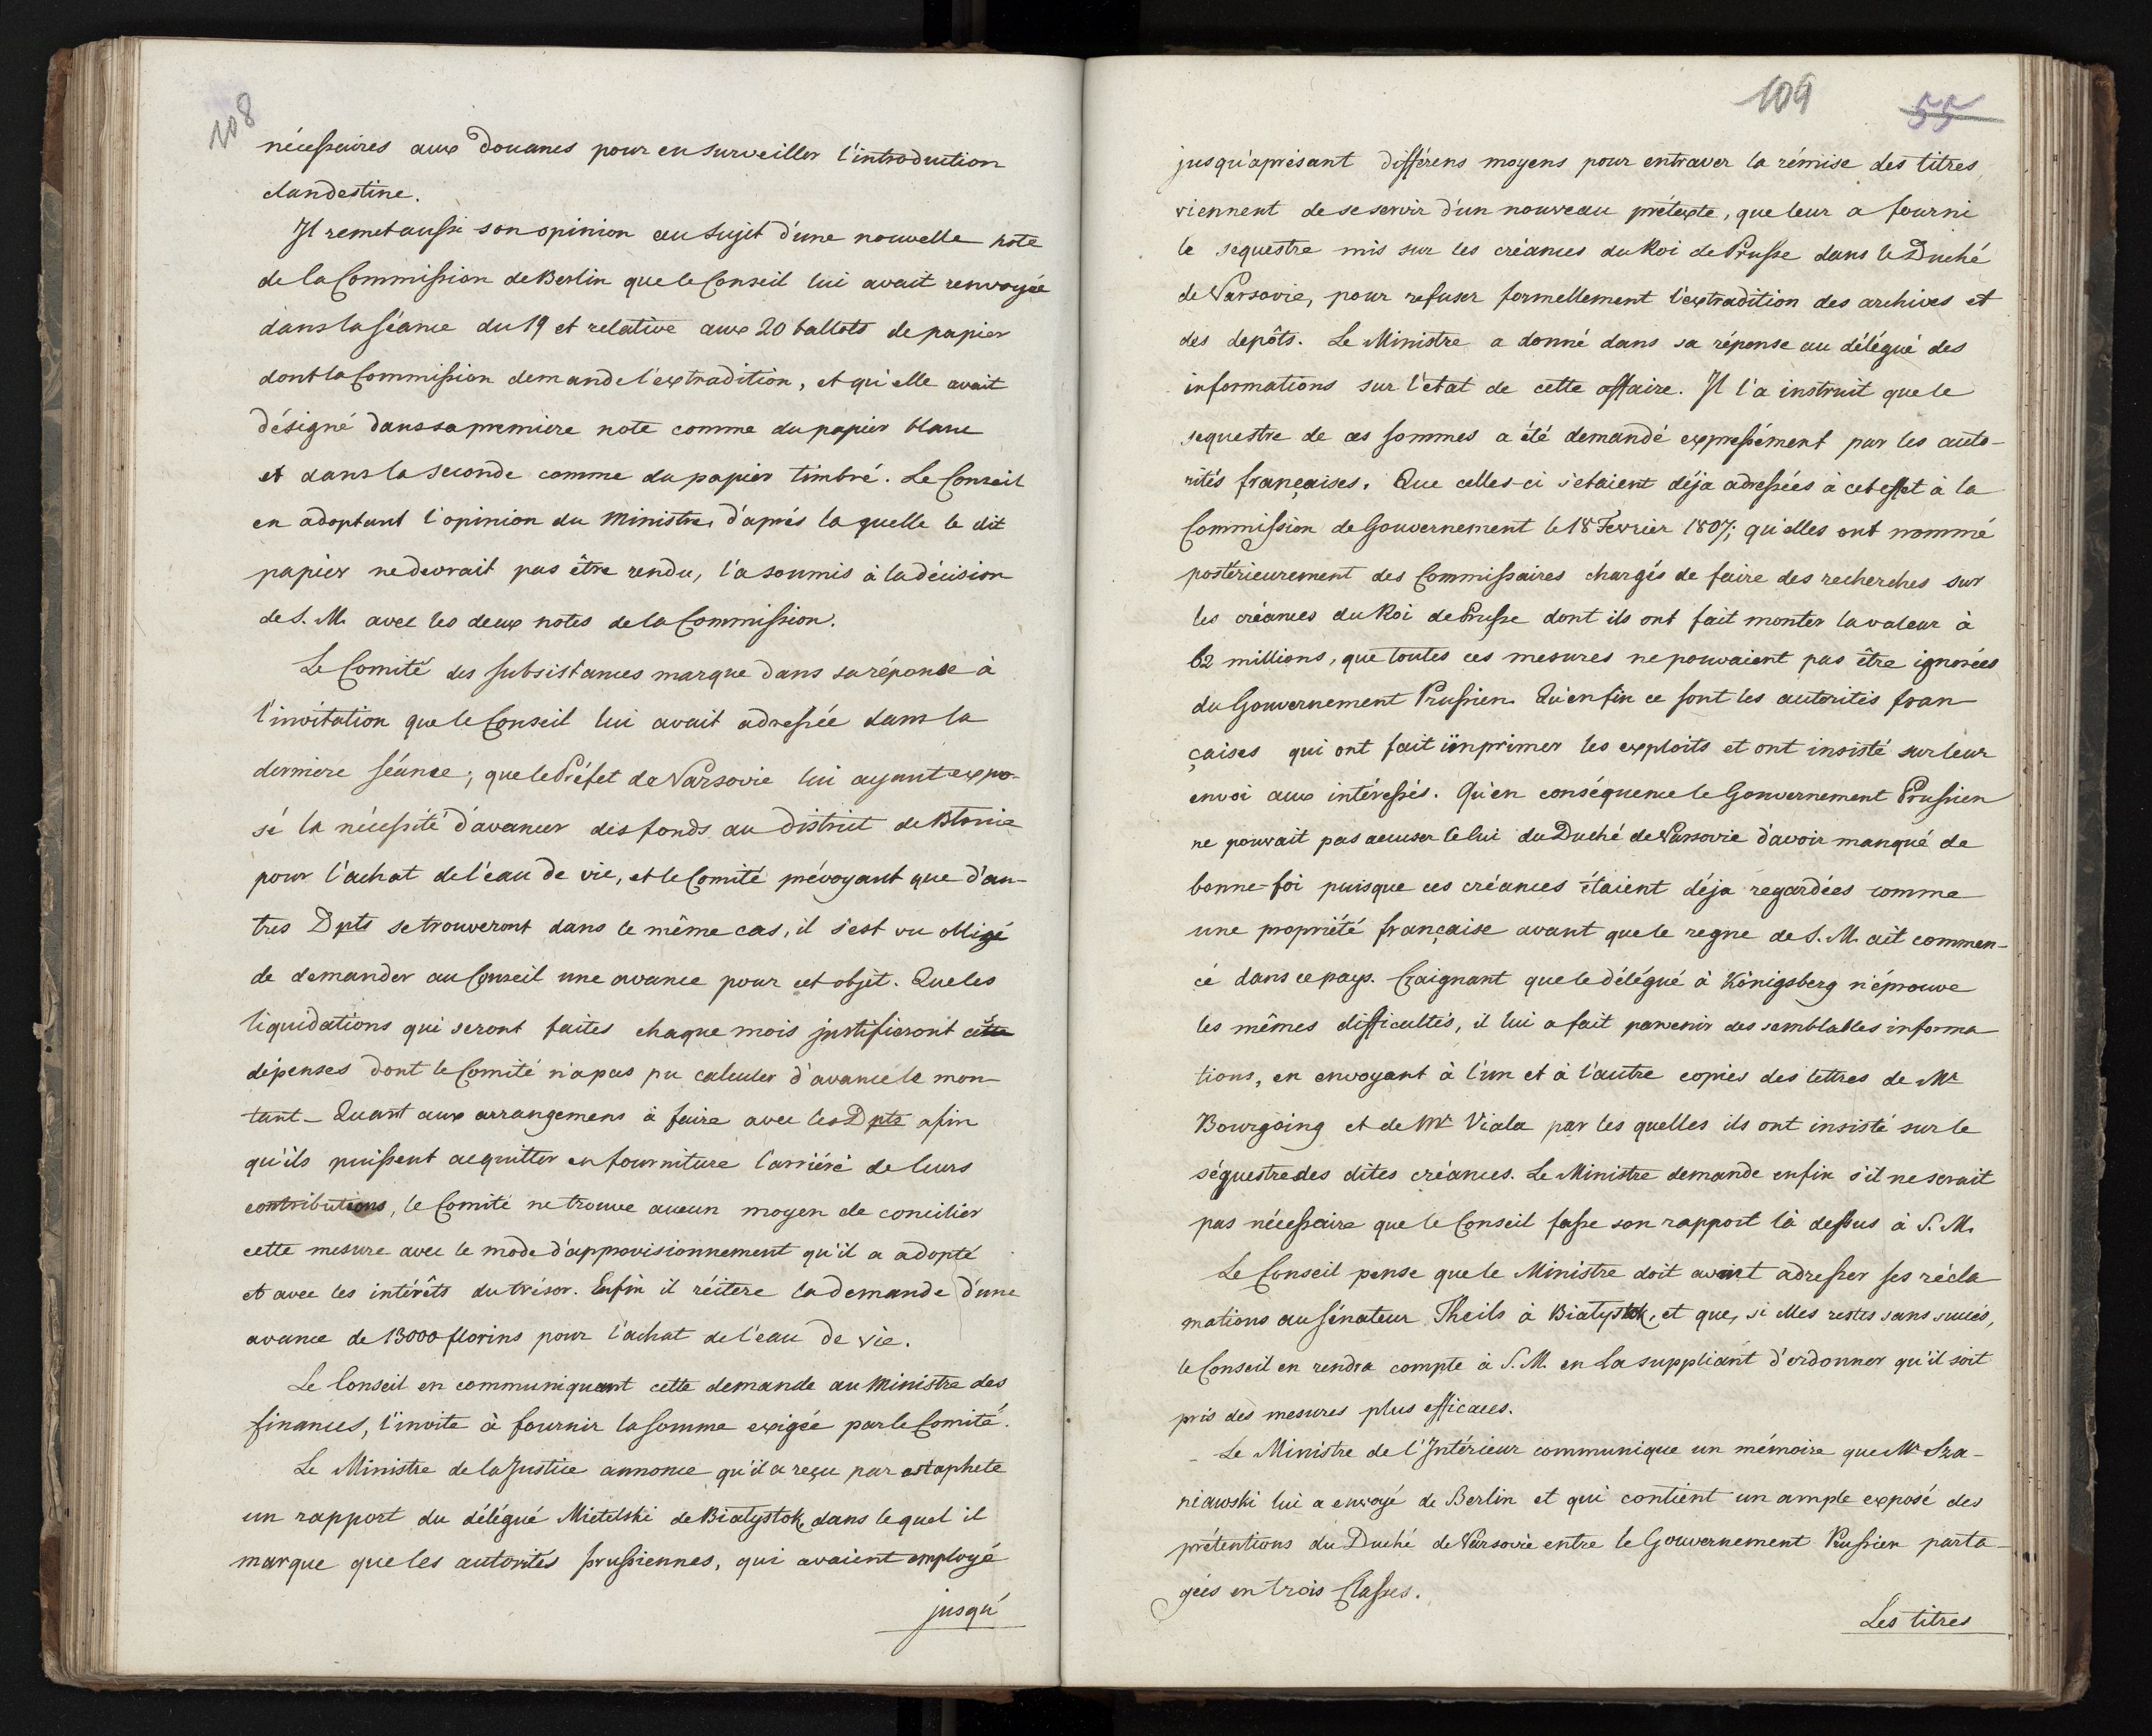 108
nécessaires aux douanes pour en surveiller l'introduction
clandestine.
Il remet aussi son opinion au sujet d'une nouvelle note
de la Commission de Berlin que le Conseil lui avait renvoyée
dans la séance du 19 et relative aux 20 ballots de papier
dont la Commission demande l'extradition, et qu'elle avait
désigné dans sa premiere note comme du papier blanc
et dans la seconde comme du papier timbré. Le Conseil
en adoptant l'opinion du Ministre, d'après la quelle le dit
papier ne devrait pas être rendu, l'a soumis à la décision
de S. M. avec les deux notes de la Commission.
Le Comité des subsistances marque dans sa réponse à
l'invitation que le Conseil lui avait adressée dans la
derniere séance; que le Préfet de Varsovie lui ayant expo-
sé la nécessité d'avancer des fonds au district de Blonie
pour l'achat de l'eau de vie, et le Comité prévoyant que d'au-
tres Dpts se trouveront dans le même cas, il s'est vu obligé
de demander au Conseil une avance pour cet objet. Que les
liquidations qui seront faites chaque mois justifieront cette
dépenses dont le Comité n'a pas pu calculer d'avance le mon-
tant_ Quant aux arrangemens à faire avec les Dpts afin
qu'ils puissent acquitter en fourniture l'arriéré de leurs
contributions, le Comité ne trouve aucun moyen de concilier
cette mesure avec le mode d'approvisionnement qu'il a adopté
et avec les intérêts du trésor. Enfin il réitere la demande d'une
avance de 13000 florins pour l'achat de l'eau de vie.
Le Conseil en communiquant cette demande au Ministre des
finances, l'invite à fournir la somme exigée par le Comité.
Le Ministre de la Justice annonce qu'il a reçu par estaphete
un rapport du délégué Mietelski de Bialystok, dans le quel il
marque que les autorités prussiennes, qui avaient employé
jusqu'
109
55
jusqu'aprésant différens moyens pour entraver la rémise des titres,
viennent de se servir d'un nouveau prétexte, que leur a fourni
le sequestre mis sur les créances du Roi de Prusse dans le Duché
de Varsovie, pour refuser formellement l'extradition des archives et
des depôts. Le Ministre a donné dans sa réponse au délégué des
informations sur l'état de cette affaire. Il l'a instruit que le
sequestre de ces sommes a été demandé expressément par les auto-
rités françaises. Que celles-ci s'etaient déja adressées à cet effet à la
Commission de Gouvernement le 18 Fevrier 1807; qu'elles ont nommé
postérieurement des Commissaires chargés de faire des recherches sur
les créances du Roi de Prusse dont ils ont fait monter la valeur à
62 millions, que toutes ces mesures ne pouvaient pas être ignorées
du Gouvernement Prussien. Qu'enfin ce sont les autorités fran-
çaises qui ont fait imprimer les exploits et ont insisté sur leur
envoi aux intéressés. Qu'en conséquence le Gouvernement Prussien
ne pouvait pas accuser celui du Duché de Varsovie d'avoir manqué de
bonne-foi puisque ces créances étaient déja regardées comme
une propriété française avant que le regne de S. M. ait commen-
cé dans ce pays. Craignant que le délégué à Königsberg n'éprouve
les mêmes difficultés, il lui a fait parvenir des semblables informa
tions, en envoyant à l'un et à l'autre copies des lettres de Mr
Bourgoing et de Mr Viala par les quelles ils ont insisté sur le
séquestre des dites créances. Le Ministre demande enfin s'il ne serait
pas nécessaire que le Conseil fasse son rapport là dessus à S. M.
Le Conseil pense que le Ministre doit avant adresser ses récla
mations au sénateur Theils à Bialystok, et que, si elles restes sans succés,
le Conseil en rendra compte à S. M. en La suppliant d'ordonner qu'il soit
pris des mesures plus efficaces.
_ Le Ministre de l'Intérieur communique un mémoire que Mr Sza-
niawski lui a envoyé de Berlin et qui contient un ample exposé des
prétentions du Duché de Varsovie entre le Gouvernement Prussien parta-
gées en trois Classes.
Les titres